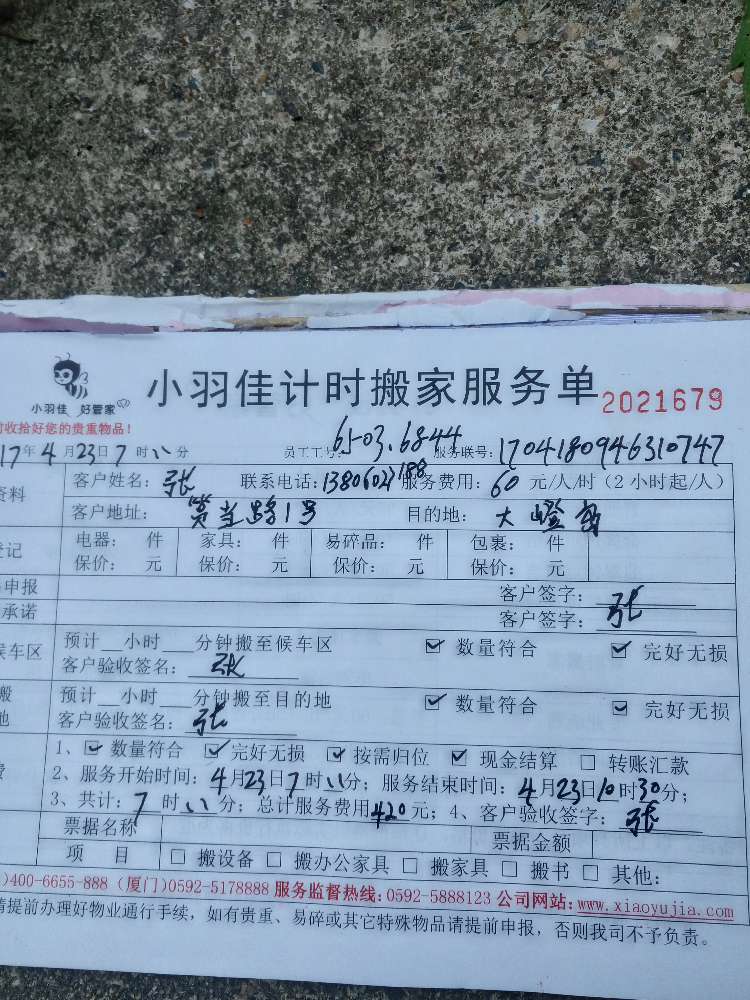 小羽佳 好管家
小羽佳计时搬家服务单 2021679
前收拾好您的贵重物品!
17年4月23日7时11分 员工工号: 6503.6844 服务联号: 1704180946310747
资料 客户姓名: 张 联系电话: 服务费用: 60 元/人/时(2小时起/人)
客户地址: 筼当路1号 目的地: 大嶝
登记 电器: 件 家具: 件 易碎品: 件 包裹: 件
保价: 元 保价: 元 保价: 元 保价: 元
申报 客户签字: 张
承诺 客户签字: 张
候车区 预计__小时___分钟搬至候车区 ☑ 数量符合 ☑ 完好无损
客户验收签名: 张
搬 预计__小时___分钟搬至目的地 ☑ 数量符合 ☑ 完好无损
地 客户验收签名: 张
1、☑ 数量符合 ☑ 完好无损 ☑ 按需归位 ☑ 现金结算 □ 转账汇款
费 2、服务开始时间: 4月23日7时11分; 服务结束时间: 4月23日10时30分;
3、共计: 7时11分; 总计服务费用420元; 4、客户验收签字: 张
票据名称 票据金额
项 目 □ 搬设备 □ 搬办公家具 □ 搬家具 □ 搬书 □ 其他:
)400-6655-888 (厦门)0592-5178888 服务监督热线: 0592-5888123 公司网站: www.xiaoyujia.com
请提前办理好物业通行手续, 如有贵重、易碎或其它特殊物品请提前申报, 否则我司不予负责。